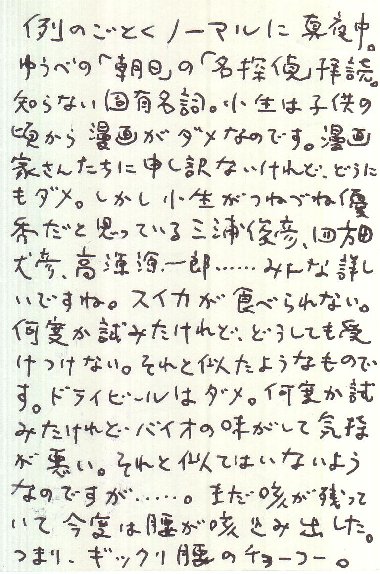 例のごとくノーマルに真夜中。
ゆうべの「朝日」の「名探偵」拝読。
知らない固有名詞。小生は子供の
頃から漫画がダメなのです。漫画
家さんたちに申し訳ないけれど、どうに
もダメ。しかし小生がつねづね優
秀だと思っている三浦俊彦、四方田
犬彦、高源源一郎……みんな詳し
いですね。スイカが食べられない。
何度か試みたけれど、どうしても受
けつけない。それと似たようなもので
す。ドライビールはダメ。何度か試
みたけれどバイオの味がして気持
が悪い。それと似てはいないよう
なのですが……。まだ咳が残って
いて今度は腰が咳込み出した。
つまり、ギックリ腰のチョーコー。